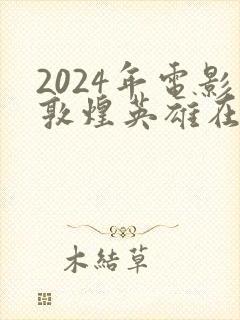 2024年電影
敦煌英雄在
木結草